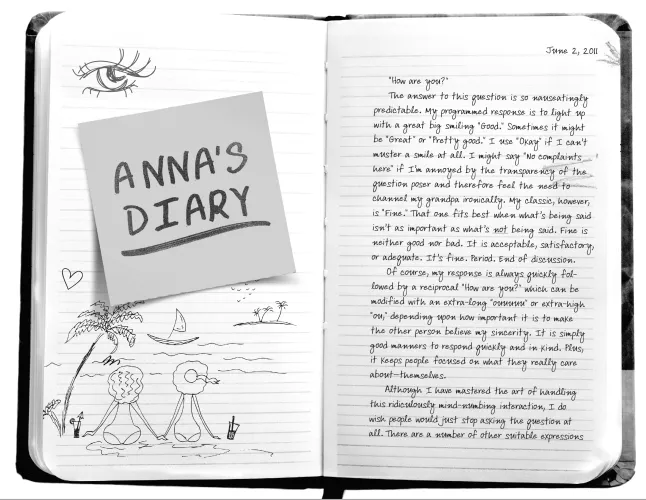 ANNA'S
DIARY
June 2, 2011
"How are you?"
The answer to this question is so nauseatingly
predictable. My programmed response is to light up
with a great big smiling "Good." Sometimes it might
be "Great" or "Pretty good." I use "Okay" if I can't
muster a smile at all. I might say "No complaints
here" if I'm annoyed by the transparency of the
question poser and therefore feel the need to
channel my grandpa ironically. My classic, however,
is "Fine." That one fits best when what's being said
isn't as important as what's not being said. Fine is
neither good nor bad. It is acceptable, satisfactory,
or adequate. It's fine. Period. End of discussion.
Of course, my response is always quickly fol-
lowed by a reciprocal "How are you?" which can be
modified with an extra-long "ouuuuu" or extra-high
"ou," depending upon how important it is to make
the other person believe my sincerity. It is simply
good manners to respond quickly and in kind. Plus,
it keeps people focused on what they really care
about—themselves.
Although I have mastered the art of handling
this ridiculously mind-numbing interaction, I do
wish people would just stop asking the question at
all. There are a number of other suitable expressions